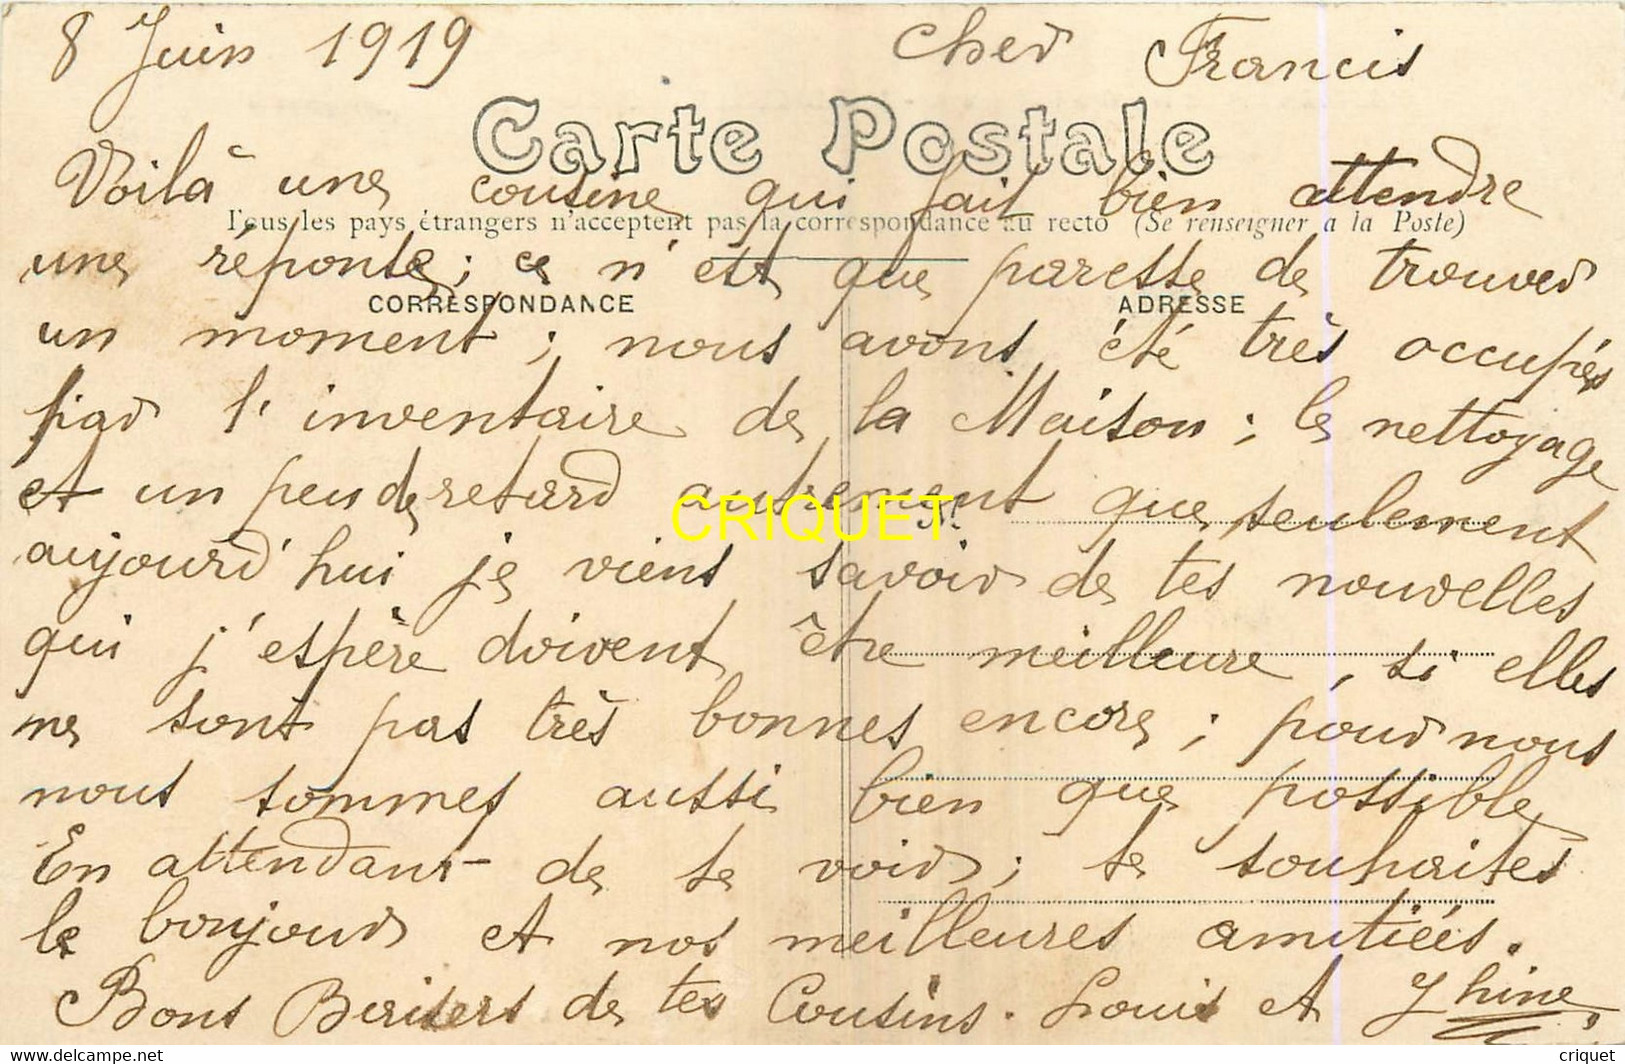 8 Juin 1919 Cher Francis
Carte Postale
Voilà une cousine qui fait bien attendre
Tous les pays étrangers n'acceptent pas la correspondance au recto (Se renseigner a la Poste)
une réponse ; ce n'est que paresse de trouver
CORRESPONDANCE ADRESSE
un moment ; nous avons été très occupés
par l'inventaire de la Maison ; le nettoyage
et un peu de retard autrement que seulement
CRIQUET
aujourd'hui je viens savoir de tes nouvelles
qui j'espère doivent être meilleure, si elles
ne sont pas très bonnes encore ; pour nous
nous sommes aussi bien que possible
En attendant de te voir ; te souhaites
le bonjour et nos meilleures amitiées.
Bons Baisers de tes Cousins. Louis et
delcampe.net criquet
criquet